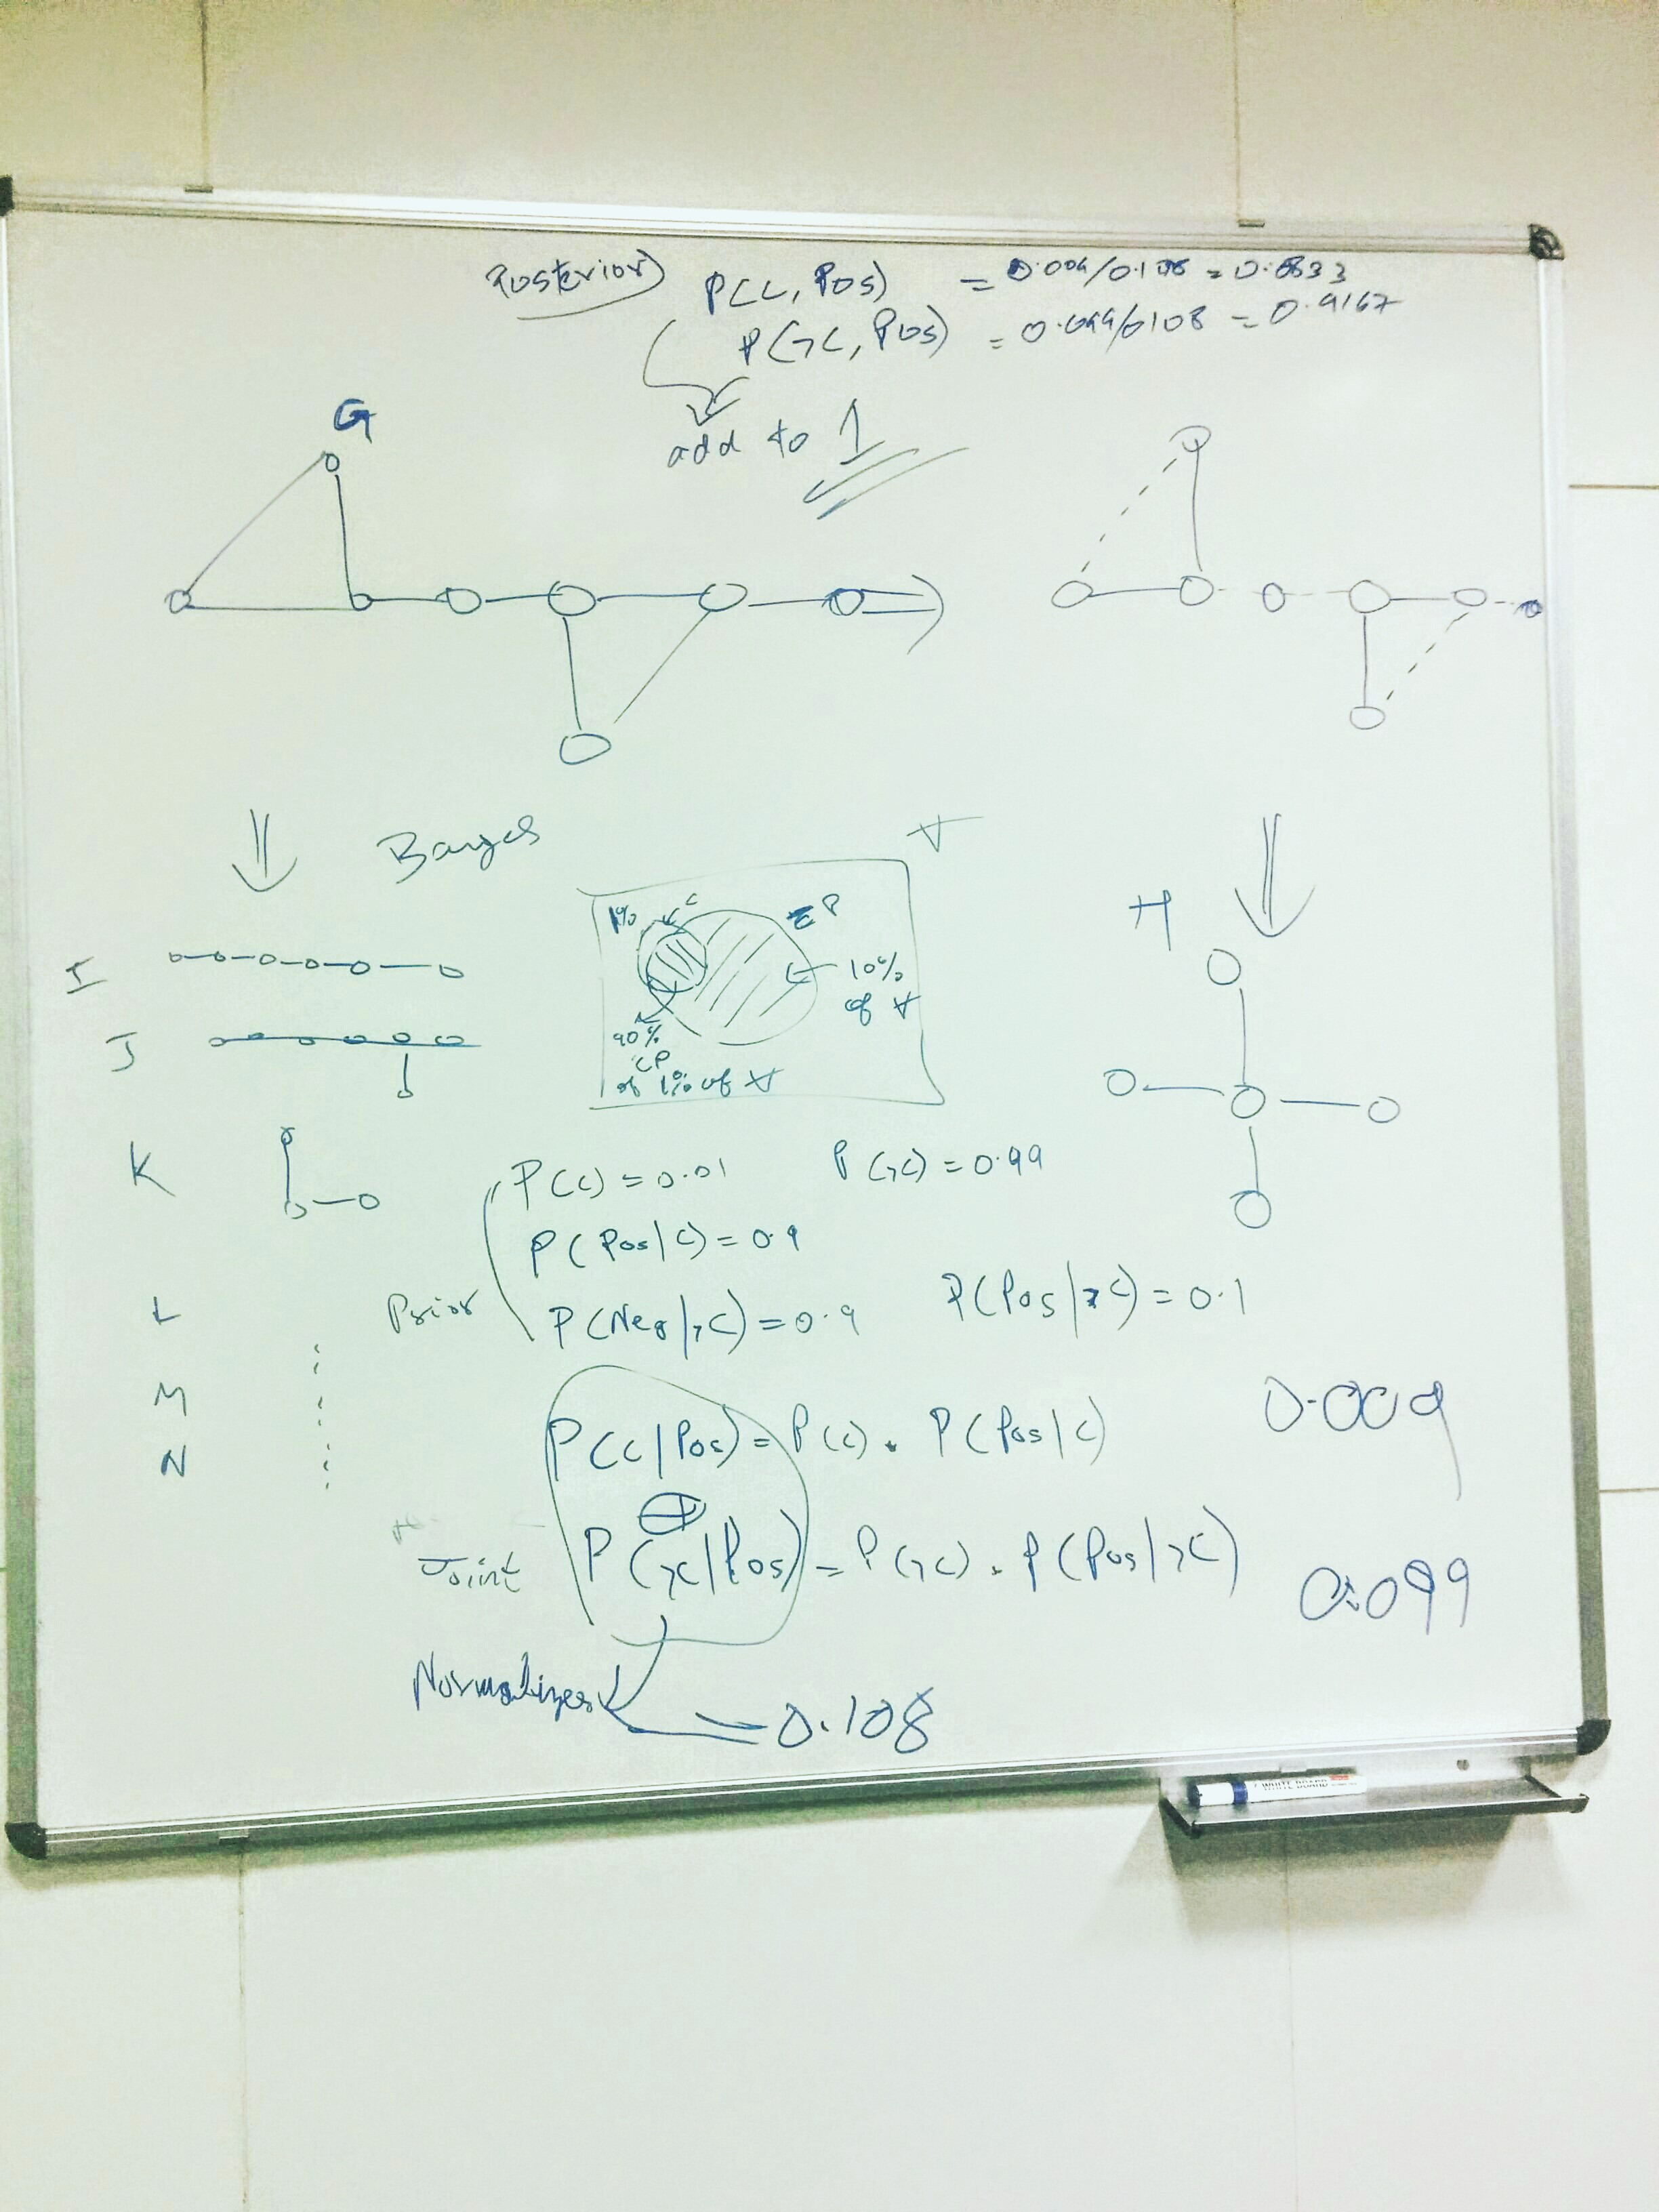 Posterior) P(C, Pos) = 0.009/0.108 = 0.0833
P(¬C, Pos) = 0.099/0.108 = 0.9167
add to 1
G
Bayes
∀
1% C P
10%
of ∀
90%
CP
of 1% of ∀
H
I
J
K
L
M
N
P(C) = 0.01 P(¬C) = 0.99
P(Pos|C) = 0.9
Prior P(Neg|¬C) = 0.9 P(Pos|¬C) = 0.1
P(C|Pos) = P(C) . P(Pos|C) 0.009
+
Joint P(¬C|Pos) = P(¬C) . P(Pos|¬C) 0.099
Normalizes = 0.108
WHITE BOARD